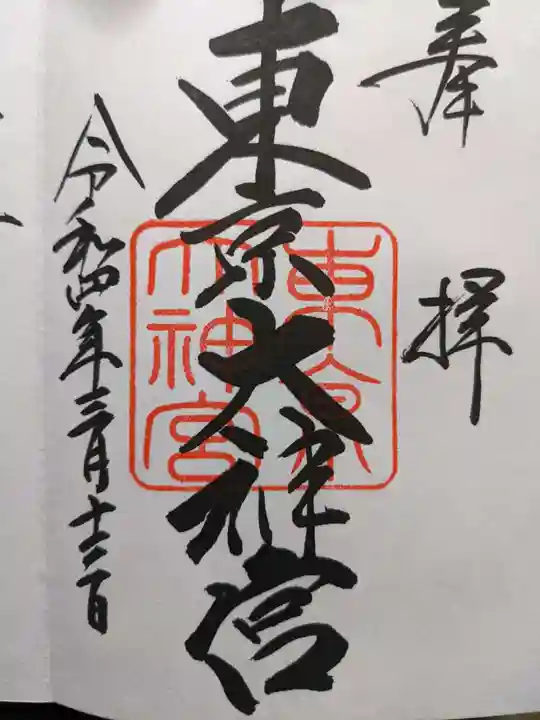 奉拝
東京大神宮
東京
大神宮
令和四年三月十二日